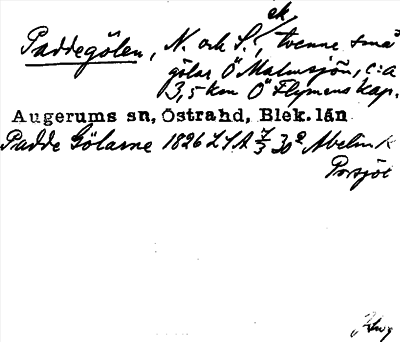 ek
Paddegölen, N. och S., tvenne små
gölar Ö Malmsjön, c:a
3,5 km Ö Flymens kap.
Augerums sn, Östra hd, Blek. län
Padde Gölarne 1826 LSA 7/3 30